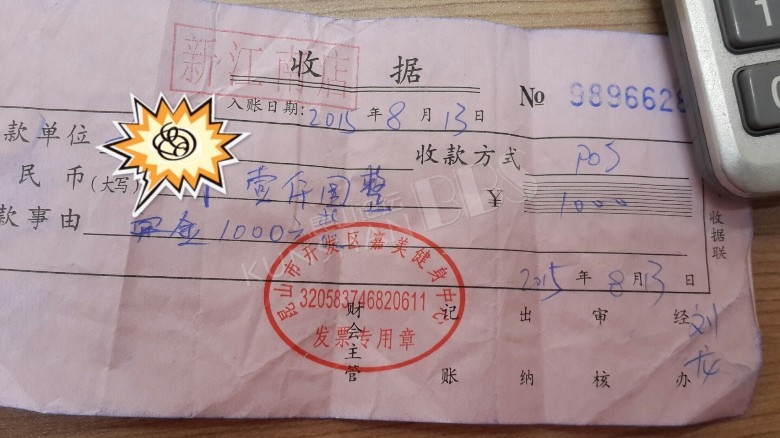 新江南店
收据
入账日期: 2015 年 8 月 13 日
№ 9896628
款单位
收款方式 POS
民币(大写) 壹仟圆整 ¥ 1000
款事由
1000元
收据联
昆山市开发区嘉美健身中心
320583746820611
发票专用章
2015 年 8 月 13 日
财会主管 记账 出纳 审核 经办 刘